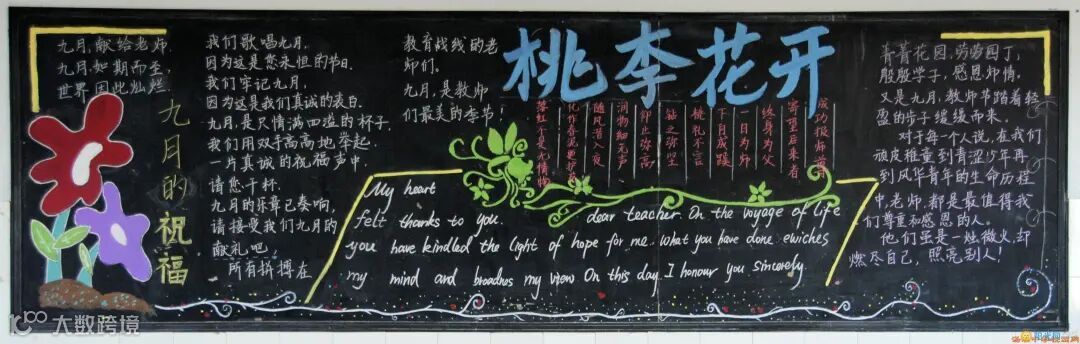 九月,献给老师.
九月,如期而至,
世界因此灿烂.
九月的祝福
我们歌唱九月,
因为这是您永恒的节日.
我们牢记九月,
因为这是我们真诚的表白.
九月,是只情满四溢的杯子.
我们用双手高高地举起.
一片真诚的祝福声中,
请您干杯.
九月的乐章已奏响,
请接受我们九月的
献礼吧.
所有拼搏在
教育战线的老
师们。
九月,是教师
们最美的季节!
桃李花开
落红不是无情物
化作春泥更护花
随风潜入夜
润物细无声
仰止弥高
钻之弥坚
桃李不言
下自成蹊
一日为师
终身为父
寄望后来者
成功报师尊
My heart
felt thanks to you. dear teacher. On the voyage of life
you have kindled the light of hope for me. What you have done ewiches
my mind and broadnos my view On this day I honour you sincerely.
青菁花园,劳劳园丁,
殷殷学子,感恩师情.
又是九月,教师节踏着轻
盈的步子缓缓而来.
对于每一个人说,在我们
顽皮稚童到青涩少年再
到风华青年的生命历程
中,老师,都是最值得我
们尊重和感恩的人.
他们虽是一烛微火,却
燃尽自己,照亮别人!
大数跨境